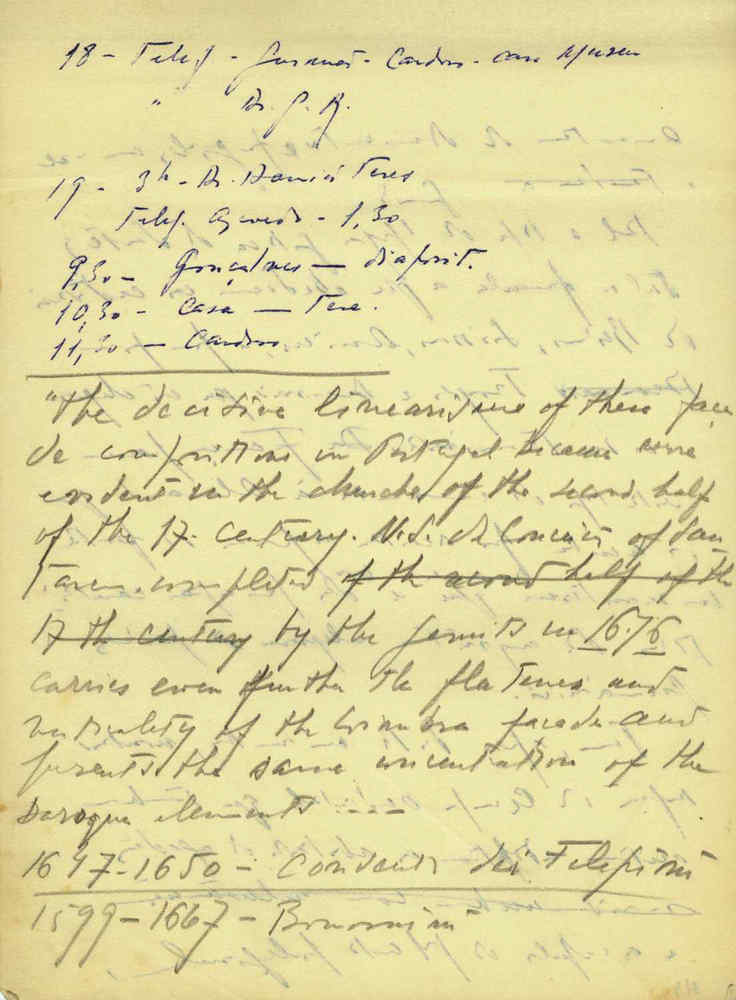 18 - Telef - Gusmão - Cardoso - casa Museu
" Dr. P. R.
19 - 3h - Dr. Damião Peres
Telef. Azevedo - 1,30
9,30 - Gonçalves - diaposit.
10,30 - Casa - Tere.
11,30 - Cardoso
"The decisive linearisme of these faça
de compositions in Portugal became more
evident in the churches of the second half
of the 17. century. N.S. da Conceição of San
tarem completed of the second half of the
17 th century by the Jesuits in 1676
carries even further the flatenes and
verticality of the Coimbra facade and
presents the same concentration of the
baroque elements ----
1647-1650 - Convento dei Filippini
1599-1667 - Borromini